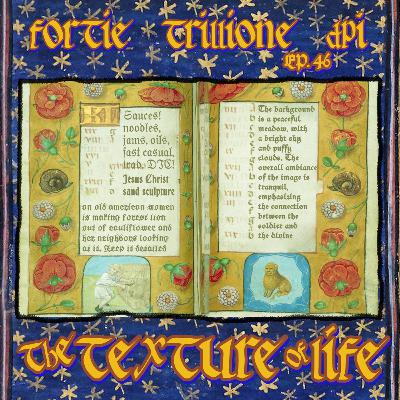 fortie trillione dpi
EP. 46
Sauces!
noodles,
jams, oils,
fast casual,
Jesus Christ
sand sculpture
an old american women
is making forest lion
out of cauliflower and
her neighbors looking
as is. Keep is detailed
The background
is a peaceful
meadow, with
a bright sky
and puffy
clouds. The
overall ambiance
of the image is
tranquil,
emphasizing
the connection
between the
soldier and
the divine
The TEXTURE of life